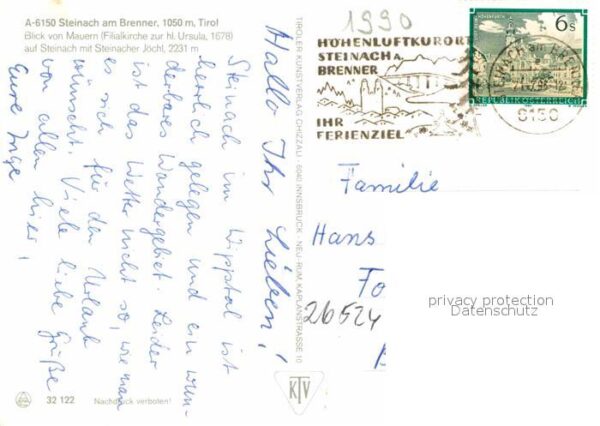 A-6150 Steinach am Brenner, 1050 m, Tirol
Blick von Mauern (Filialkirche zur hl. Ursula, 1678)
auf Steinach mit Steinacher Jöchl, 2231 m
Hallo Ihr Lieben!
Steinach im Wipptal ist
herrlich gelegen und ein wun-
derbares Wandergebiet. Leider
ist das Wetter nicht so, wie man
es sich für den Urlaub
wünscht. Viele liebe Grüße
von allen hier!
Eure Inge
32 122
Nachdruck verboten!
TIROLER KUNSTVERLAG CHIZZALI · 6040 INNSBRUCK - NEU-RUM, KAPLANSTRASSE 10
KTV
1990
HÖHENLUFTKURORT
STEINACH A.
BRENNER
IHR
FERIENZIEL
6 s
REPUBLIK ÖSTERREICH
6150
Familie
Hans
To
26524
privacy protection
Datenschutz